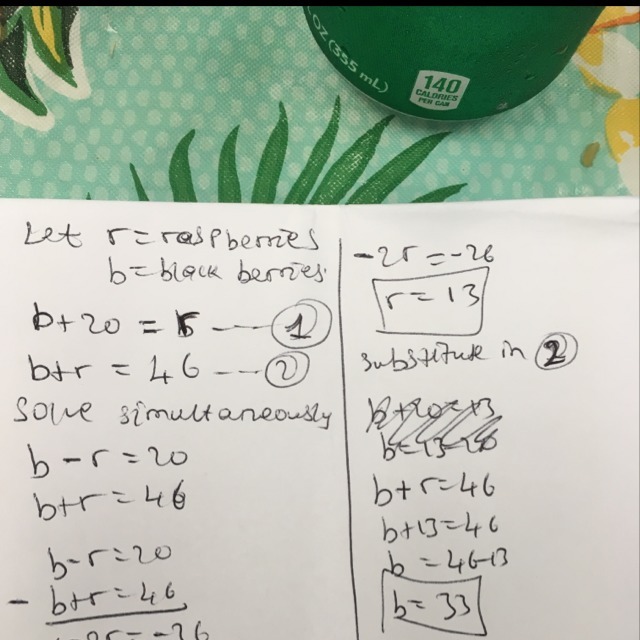 OZ (355 mL)
140
CALORIES
PER CAN
Let r = raspberries
b = black berries.
b + 20 = r — ①
b + r = 46 — ②
Solve simultaneously
b - r = 20
b + r = 46
b - r = 20
- b + r = 46
-2r = -26
-2r = -26
r = 13
substitute in ②
b + 20 = 13
b + r = 46
b + 13 = 46
b = 46 - 13
b = 33